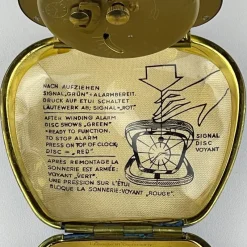 NACH AUFZIEHEN
SIGNAL „GRÜN" = ALARMBEREIT.
DRUCK AUF ETUI SCHALTET
LÄUTEWERK AB: SIGNAL = „ROT."
AFTER WINDING ALARM
DISC SHOWS „GREEN"
= READY TO FUNCTION.
TO STOP ALARM
PRESS ON TOP OF CLOCK;
DISC = „RED"
APRÈS REMONTAGE LA
SONNERIE EST ARMÉE:
VOYANT „VERT".
UNE PRESSION SUR L'ÉTUI
BLOQUE LA SONNERIE: VOYANT „ROUGE".
SIGNAL
DISC
VOYANT